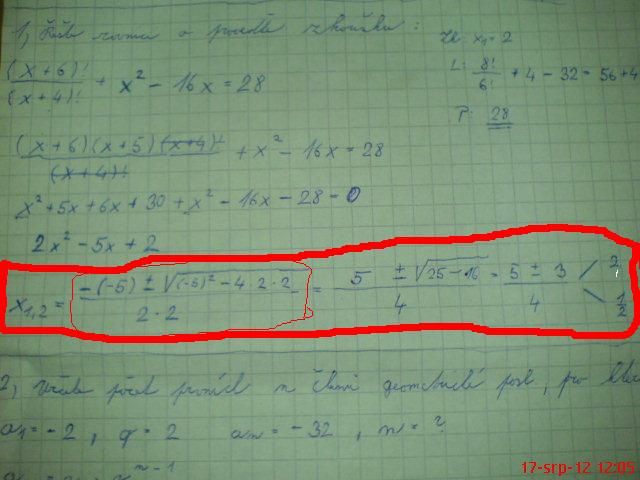 1, Řešte rovnici a proveďte zkoušku:
(x+6)!/(x+4)! + x² - 16x = 28
Zk: x₁ = 2
L: 8!/6! + 4 - 32 = 56+4
P: 28
(x+6)(x+5)(x+4)!/(x+4)! + x² - 16x = 28
x² + 5x + 6x + 30 + x² - 16x - 28 = 0
2x² - 5x + 2
x₁,₂ = -(-5) ± √(-5)² - 4·2·2 / 2·2 = 5 ± √25-16 / 4 = 5 ± 3 / 4 2
1/2
2, Určete počet prvních n členů geometrické posl, pro
a₁ = -2, q = 2 aₙ = -32, n = ?
n-1
17-srp-12 12:05